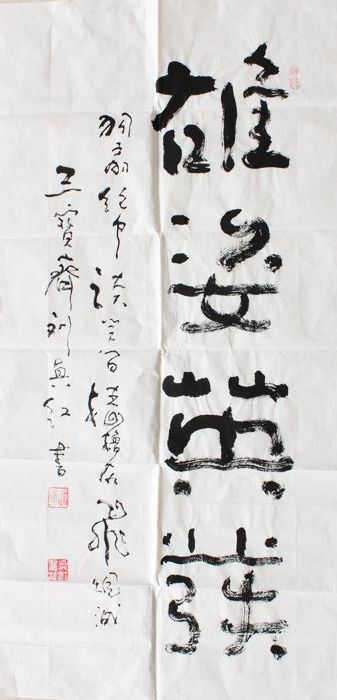 雄姿英發
羽扇綸巾談笑間檣櫓灰飛煙滅
三寶齋刘真红書